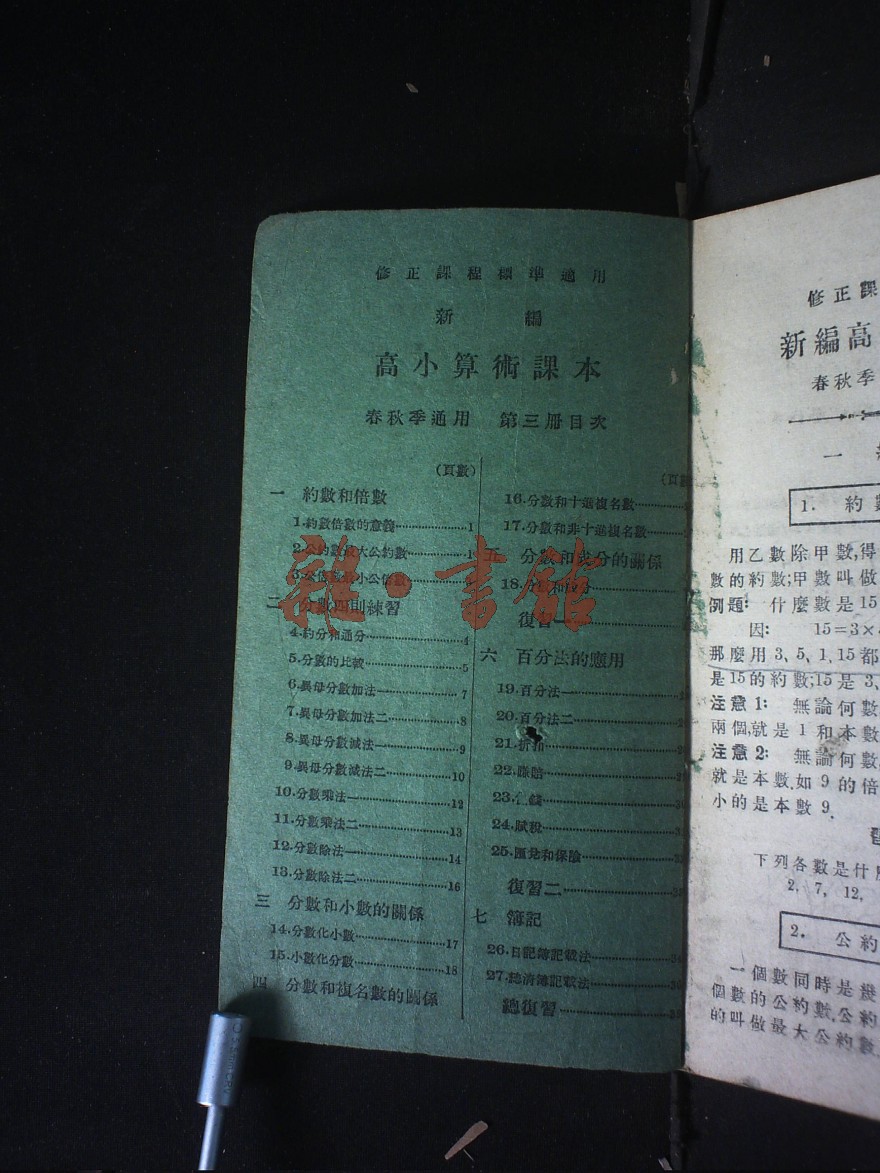 修正課程標準適用
新編
高小算術課本
春秋季通用 第三册目次
(頁數)
一 約數和倍數
1.約數倍數的意義 1
2.公約數最大公約數 1
3.公倍數最小公倍數
二 分數四則練習
4.約分和通分 4
5.分數的比較 5
6.異母分數加法一 7
7.異母分數加法二 8
8.異母分數減法一 9
9.異母分數減法二 10
10.分數乘法一 12
11.分數乘法二 13
12.分數除法一 14
13.分數除法二 16
三 分數和小數的關係
14.分數化小數 17
15.小數化分數 18
四 分數和複名數的關係
(頁數
16.分數和十進複名數
17.分數和非十進複名數
五 分數和成分的關係
18.分數和成分
復習一
六 百分法的應用
19.百分法一
20.百分法二
21.折扣
22.賺賠
23.
24.賦稅
25.匯兌和保險
復習二
七 簿記
26.日記簿記載法
27.總清簿記載法
總復習
雜·書館
修正課
新編高
春秋季
一
1. 約數
用乙數除甲數,得
數的約數;甲數叫做
例題: 什麼數是15
因: 15=3×
那麼用3、5、1、15都
是15的約數;15是3、
注意1: 無論何數
兩個,就是1和本數
注意2: 無論何數
就是本數.如9的倍
小的是本數9.
下列各數是什麼
2, 7, 12,
2. 公約
一個數同時是幾
個數的公約數.公約
的叫做最大公約數.